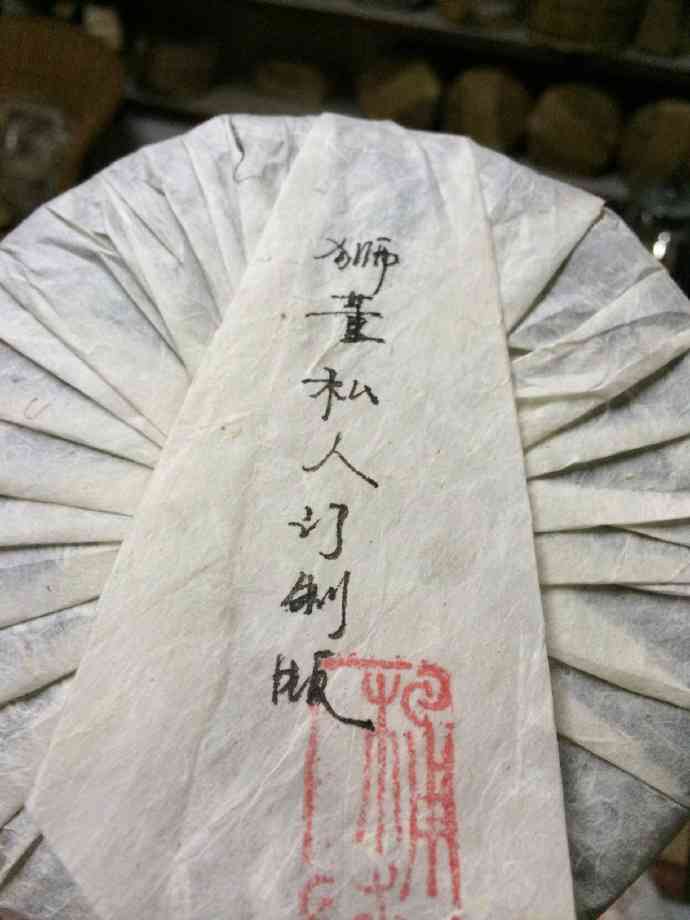 狮董私人订制版